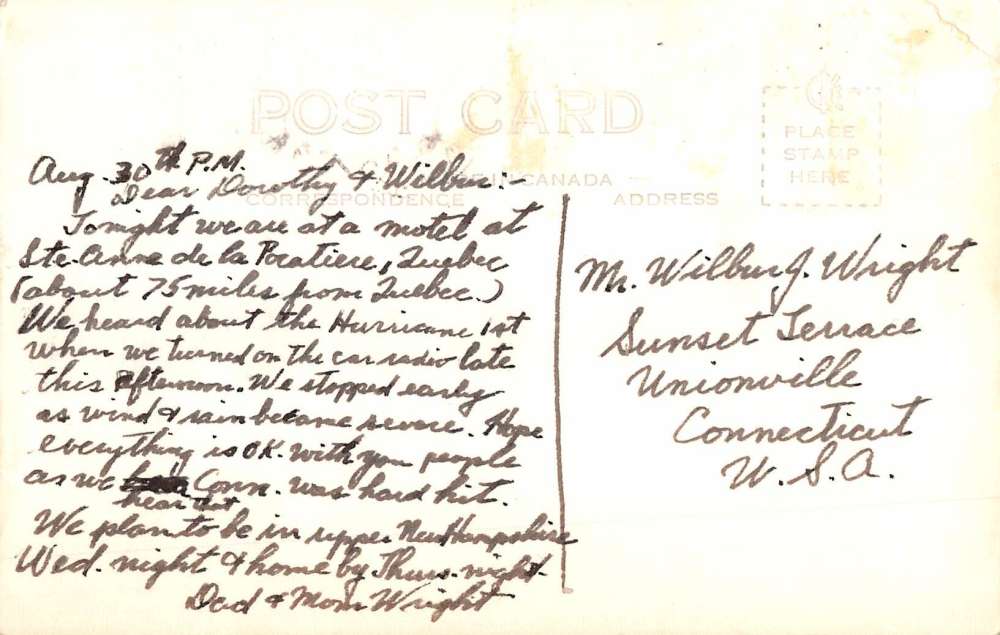 POST CARD
PLACE
STAMP
HERE
IN CANADA
CORRESPONDENCE
ADDRESS
Aug. 30th P.M.
Dear Dorothy & Wilbur:-
Tonight we are at a motel at
Ste. Anne de la Pocatiere, Quebec
(about 75 miles from Quebec.)
We heard about the Hurricane 1st
when we turned on the car radio late
this afternoon. We stopped early
as wind & rain became severe. Hope
everything is OK. with you people
as we Conn. was hard hit.
hear that
We plan to be in upper New Hampshire
Wed. night & home by Thurs. night.
Dad & Mom Wright
Mr. Wilbur J. Wright
Sunset Terrace
Unionville
Connecticut
U.S.A.